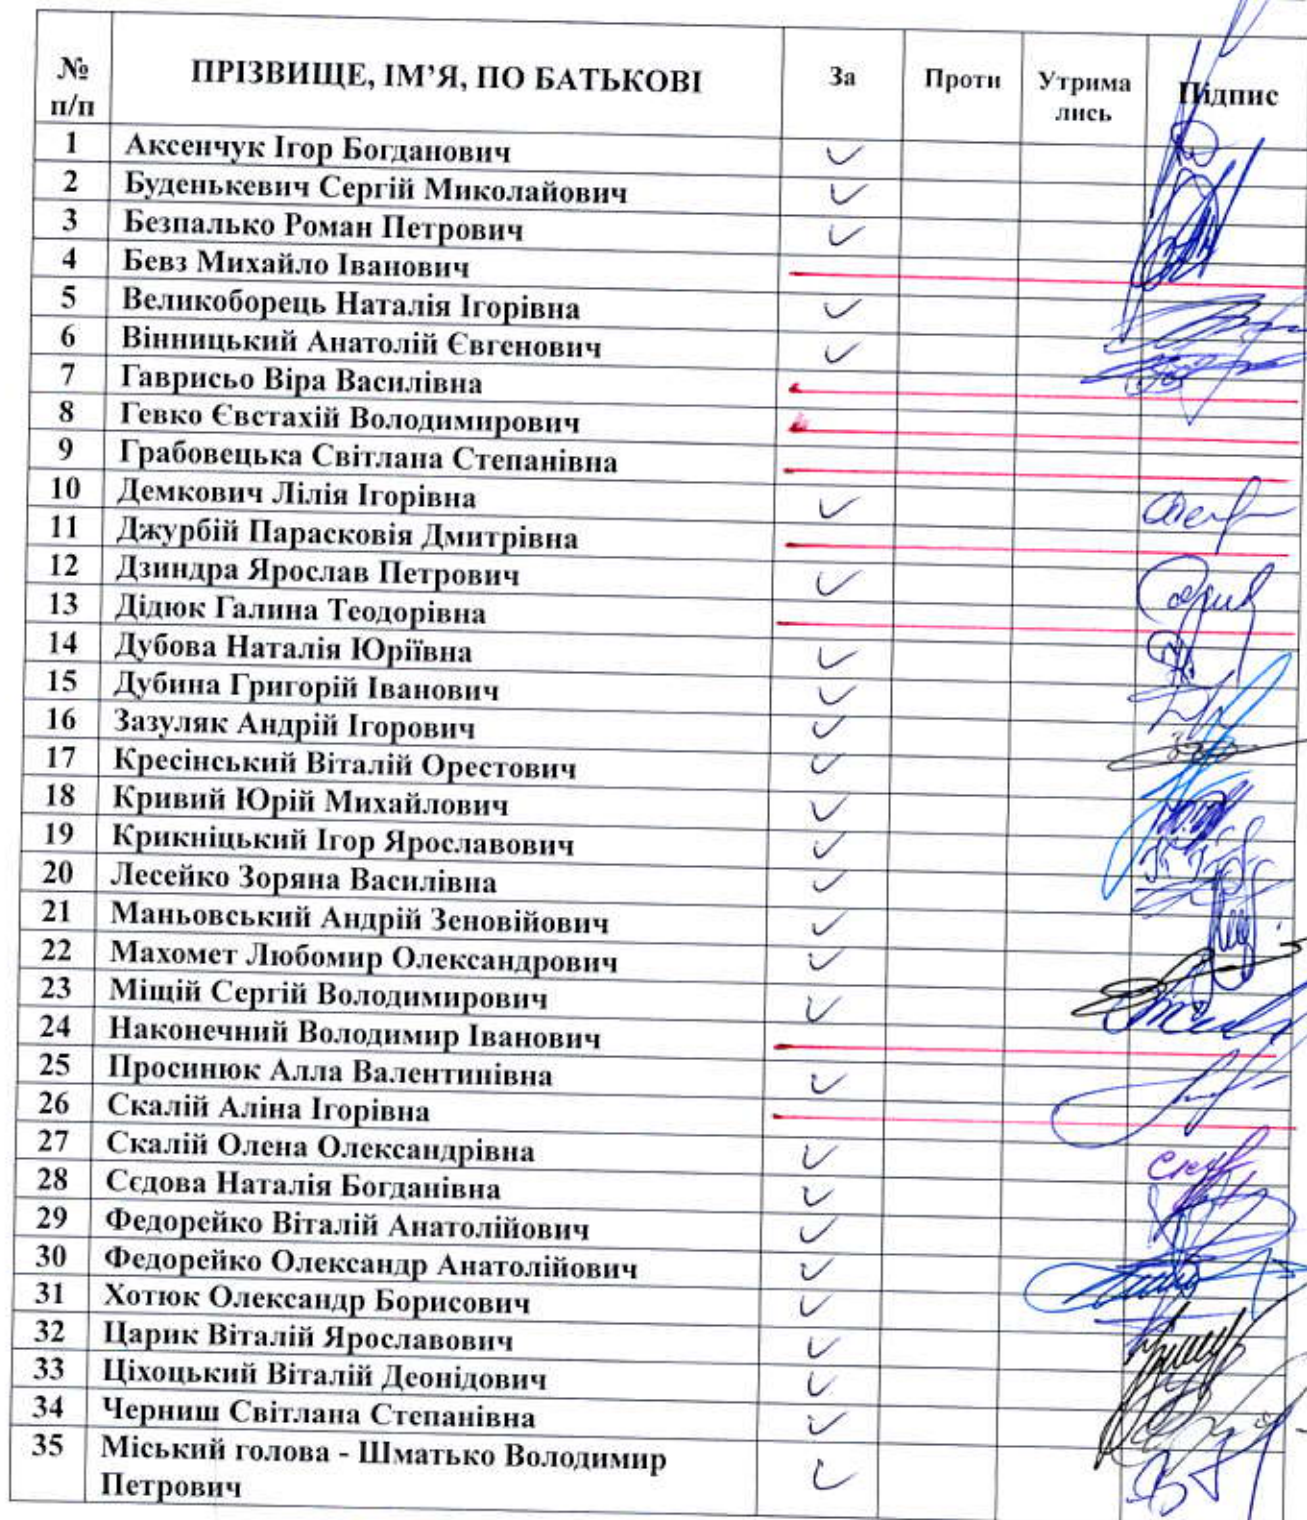 № п/п ПРІЗВИЩЕ, ІМ’Я, ПО БАТЬКОВІ За Проти Утрима лись Підпис
1 Аксенчук Ігор Богданович ✓
2 Буденькевич Сергій Миколайович ✓
3 Безпалько Роман Петрович ✓
4 Бевз Михайло Іванович
5 Великоборець Наталія Ігорівна ✓
6 Вінницький Анатолій Євгенович ✓
7 Гаврисьо Віра Василівна
8 Гевко Євстахій Володимирович
9 Грабовецька Світлана Степанівна
10 Демкович Лілія Ігорівна ✓
11 Джурбій Парасковія Дмитрівна
12 Дзиндра Ярослав Петрович ✓
13 Дідюк Галина Теодорівна
14 Дубова Наталія Юріївна ✓
15 Дубина Григорій Іванович ✓
16 Зазуляк Андрій Ігорович ✓
17 Кресінський Віталій Орестович ✓
18 Кривий Юрій Михайлович ✓
19 Крикніцький Ігор Ярославович ✓
20 Лесейко Зоряна Василівна ✓
21 Маньовський Андрій Зеновійович ✓
22 Махомет Любомир Олександрович ✓
23 Міщій Сергій Володимирович ✓
24 Наконечний Володимир Іванович
25 Просинюк Алла Валентинівна ✓
26 Скалій Аліна Ігорівна
27 Скалій Олена Олександрівна ✓
28 Сєдова Наталія Богданівна ✓
29 Федорейко Віталій Анатолійович ✓
30 Федорейко Олександр Анатолійович ✓
31 Хотюк Олександр Борисович ✓
32 Царик Віталій Ярославович ✓
33 Ціхоцький Віталій Деонідович ✓
34 Черниш Світлана Степанівна ✓
35 Міський голова - Шматько Володимир ✓
Петрович